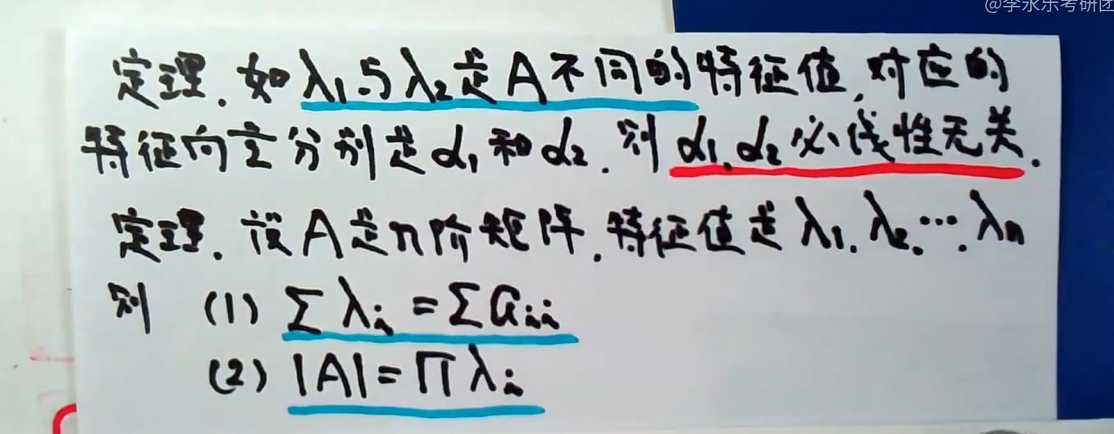 @李永乐考研团
定理. 如λ₁与λ₂是A不同的特征值, 对应的
特征向量分别是α₁和α₂. 则α₁, α₂必线性无关.
定理. 设A是n阶矩阵. 特征值是λ₁, λ₂, …, λₙ
则 (1) Σλᵢ = Σaᵢᵢ
(2) |A| = Πλᵢ